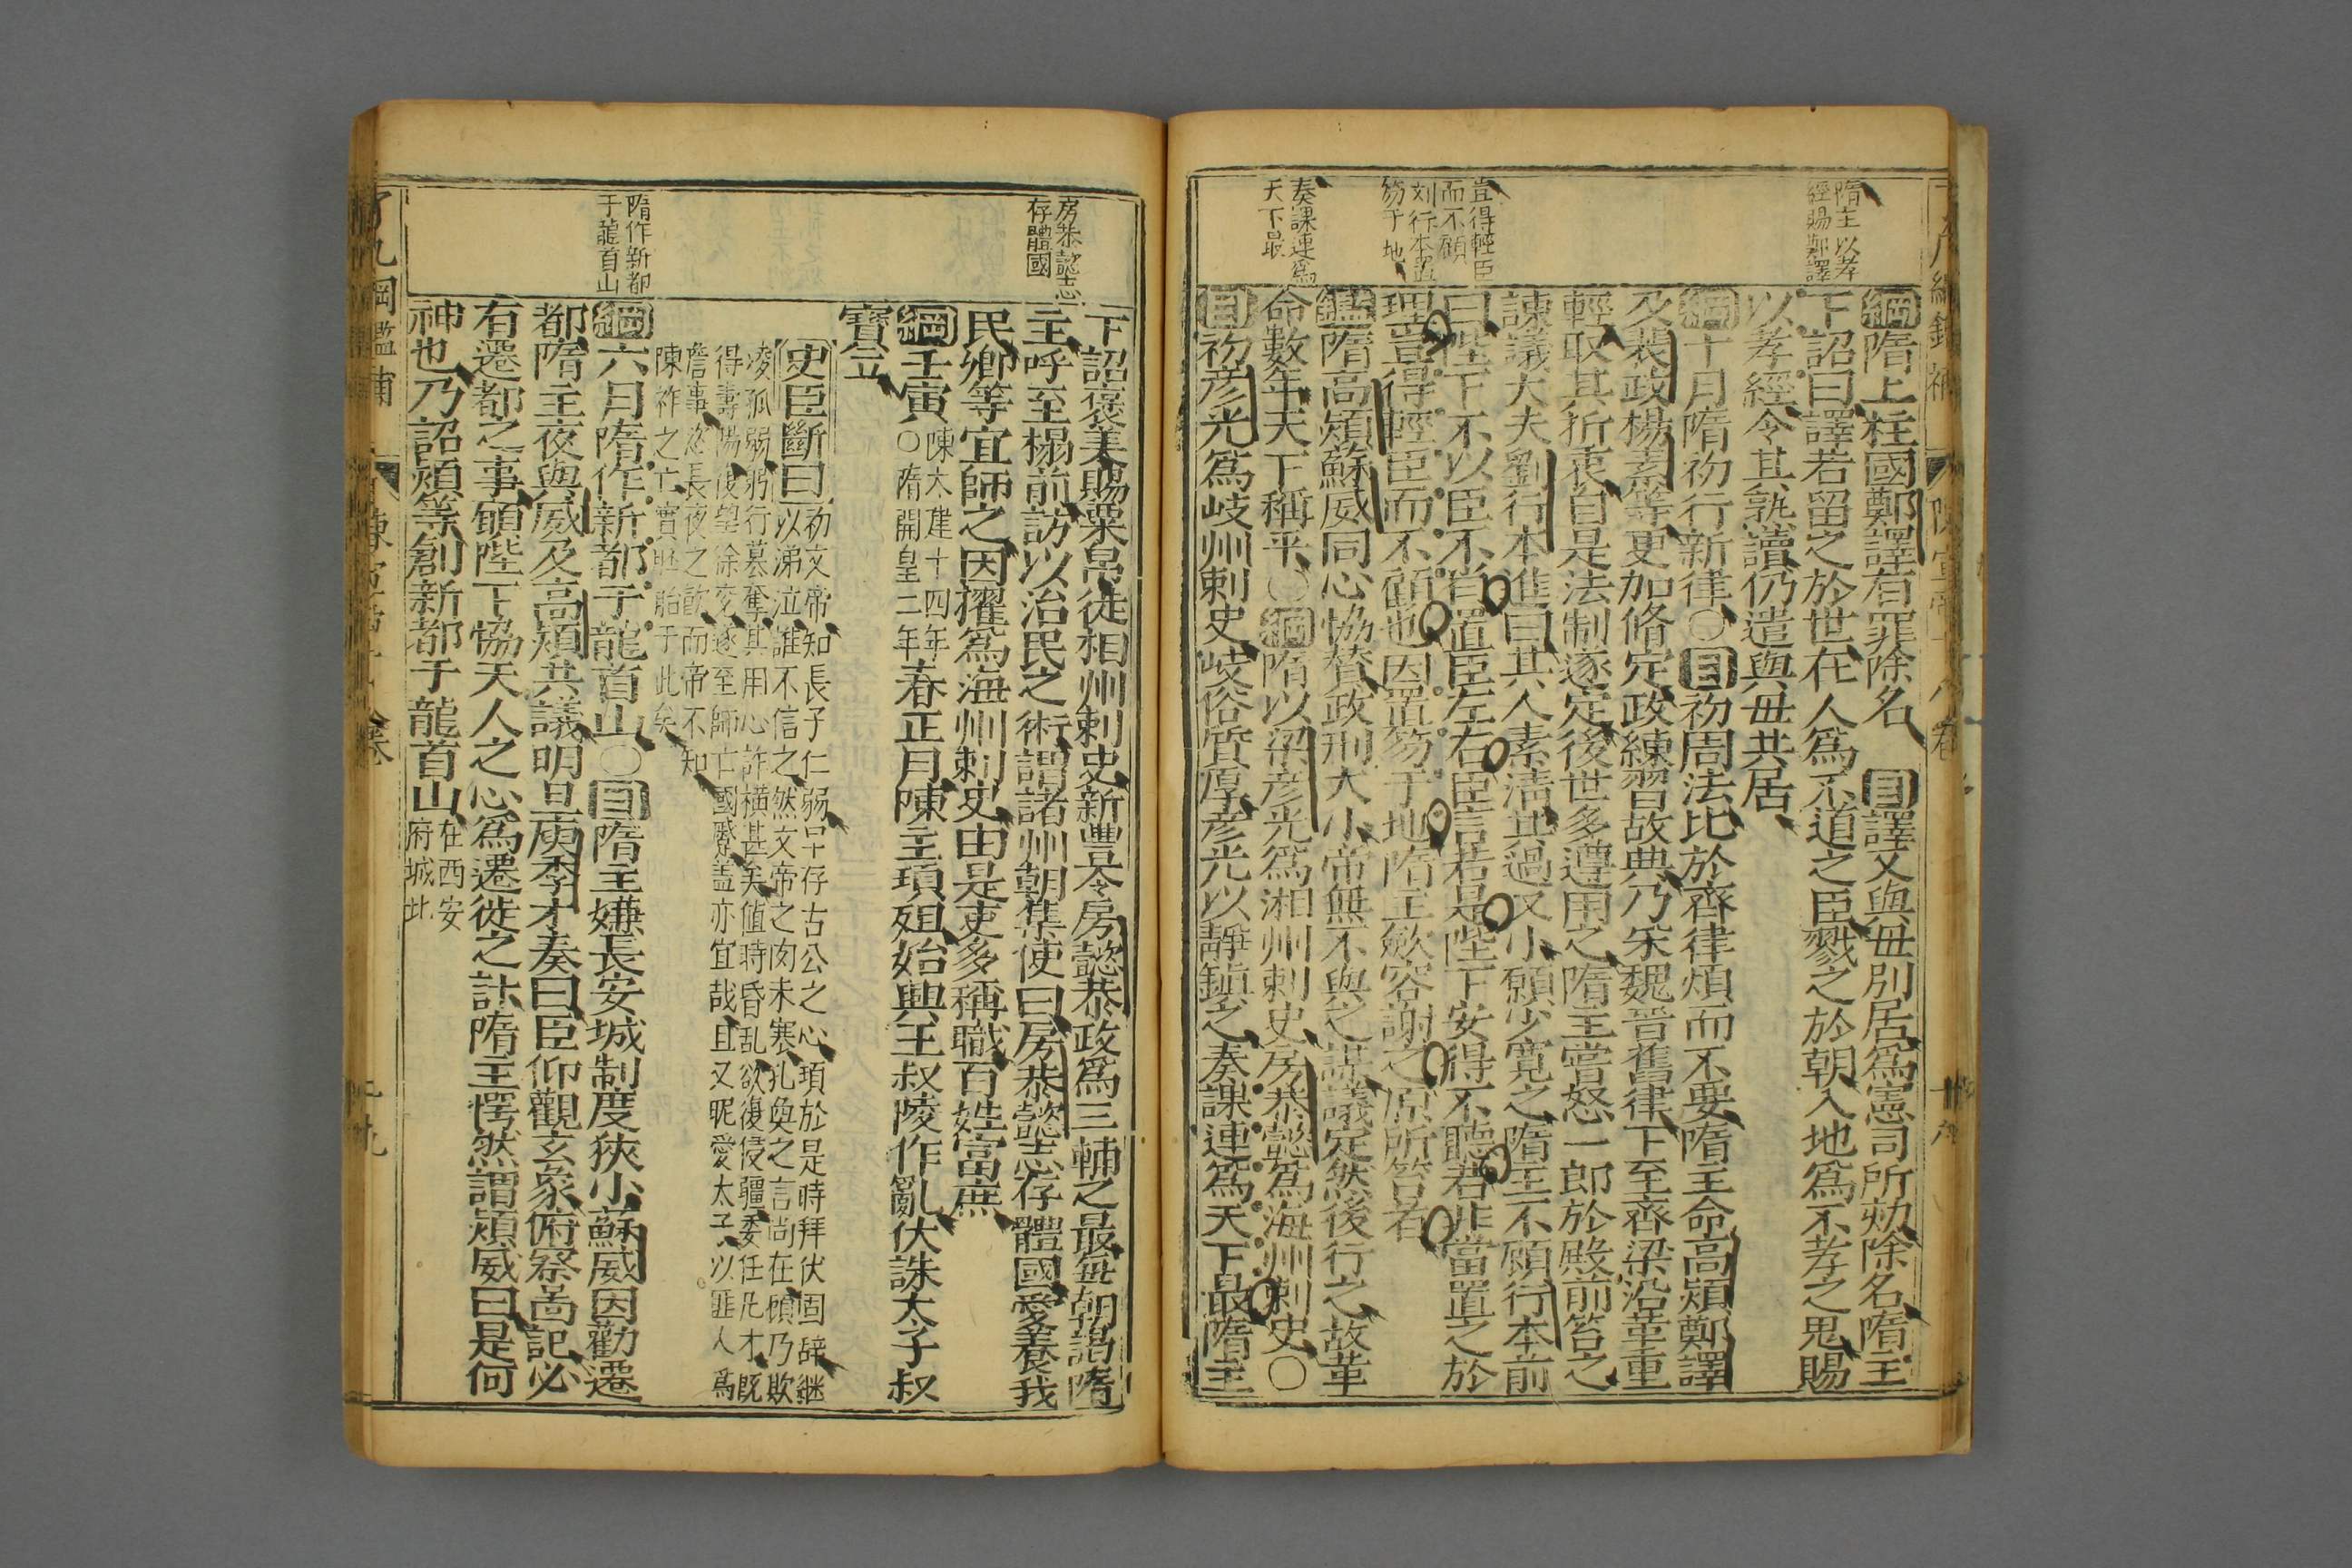 隋主以孝
經賜鄭譯
豈得輕臣
而不顧
刻行本置
笏于地
奏課連爲
天下最
綱隋上柱國鄭譯有罪除名　目譯又與母別居爲憲司所劾除名隋主
下詔曰譯若留之於世在人爲不道之臣戮之於朝入地爲不孝之鬼賜
以孝經令其孰讀仍遣與母共居
綱十月隋初行新律○目初周法比於齊律煩而不要隋主命高熲鄭譯
及裴政楊素等更加脩定政練習故典乃采魏晉舊律下至齊梁沿革重
輕取其折衷自是法制遂定後世多遵用之隋主嘗怒一郎於殿前笞之
諫議大夫劉行本進曰其人素清其過又小願少寬之隋主不顧行本前
曰陛下不以臣不肖置臣左右臣言若是陛下安得不聽若非當置之於
理豈得輕臣而不顧也因置笏于地隋主歛容謝之原所笞者
鑑隋高熲蘇威同心恊賛政刑大小帝無不與之謀議定然後行之故革
命數年天下稱平○綱隋以梁彥光爲湘州剌史房恭懿爲海州剌史○
目初彥光爲岐州剌史岐俗質厚彥光以靜鎮之奏課連爲天下最隋主
房恭懿志
存體國
隋作新都
于龍首山
下詔褒美賜粟帛徙相州剌史新豊令房懿恭政爲三輔之最每朝謁隋
主呼至榻前訪以治民之術謂諸州朝集使曰房恭懿志存體國愛養我
民卿等宜師之因擢爲海州剌史由是吏多稱職百姓富庶
綱壬寅○陳大建十四年隋開皇二年春正月陳主頊殂始興王叔陵作亂伏誅太子叔
寶立
史臣斷曰初文帝知長子仁弱早存古公之心頊於是時拜伏固辭継
以涕泣誰不信之然文帝之肉未寒孔奐之言尚在頊乃欺
凌孤弱躬行墓奪其用心詐橫甚矣値時昏乱欲復侵疆委任凡才既
得壽陽復望徐兗遂至師亡國蹙盖亦宜哉且又眤愛太子以匪人爲
詹事恣長夜之飮而帝不知
陳祚之亡實胚胎于此矣
綱六月隋作新都于龍首山○目隋主嫌長安城制度狹小蘇威因勸遷
都隋主夜與威及高熲共議明旦庾季才奏曰臣仰觀玄象俯察啚記必
有遷都之事願陛下恊天人之心爲遷徙之計隋主愕然謂熲威曰是何
神也乃詔熲等創新都于龍首山在西安府城北
了凡綱鑑補